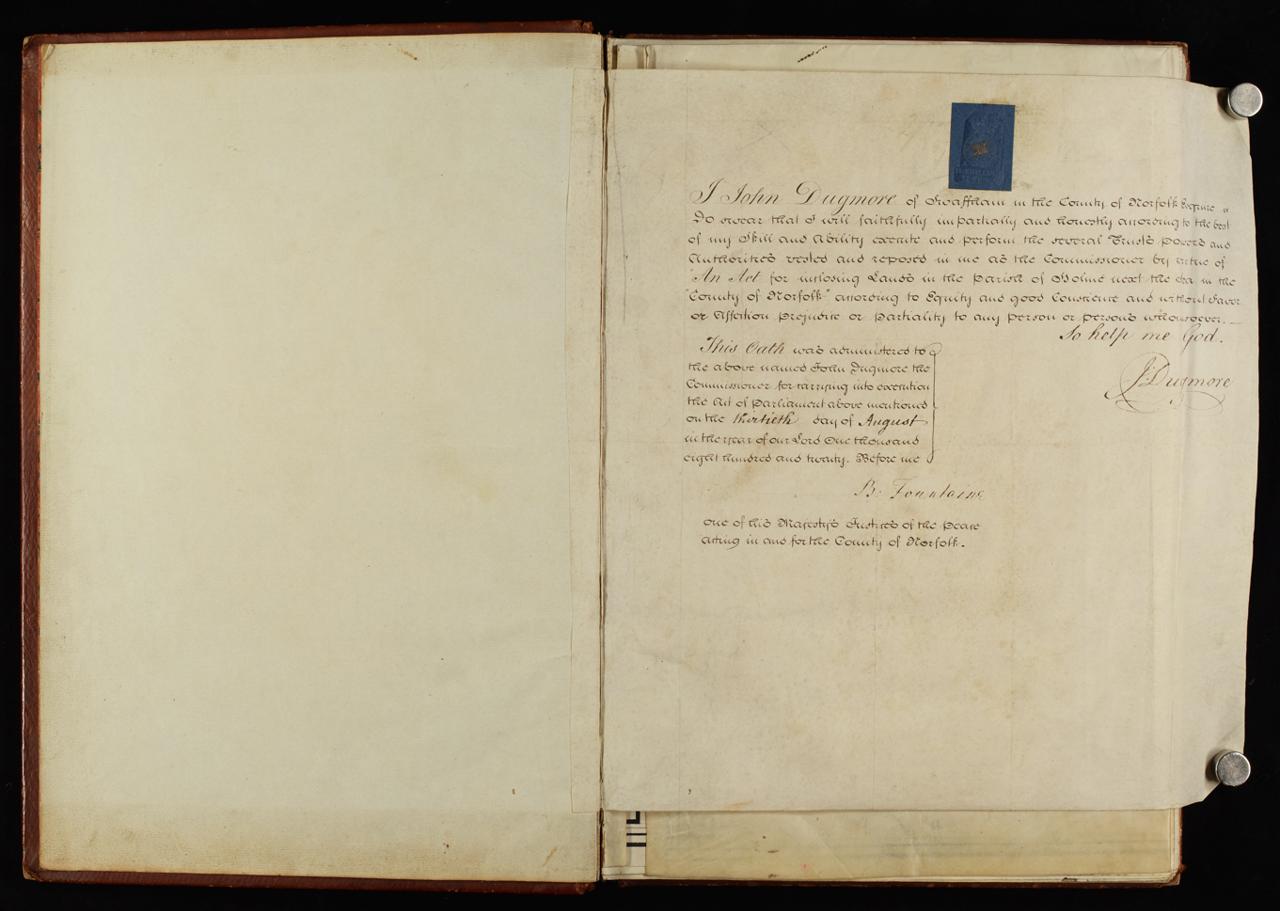 I John Dugmore of Swaffham in the County of Norfolk Esquire
Do swear that I will faithfully impartially and honestly according to the best
of my Skill and Ability execute and perform the several Trusts Powers and
Authorities vested and reposed in me as the Commissioner by virtue of
"An Act for inclosing Lands in the Parish of Holme next the Sea in the
"County of Norfolk" according to Equity and good Conscience and without Favor
or Affection Prejudice or Partiality to any person or persons whomsoever. —
So help me God.
J: Dugmore
This Oath was administered to
the above named John Dugmore the
Commissioner for carrying into execution
the Act of Parliament above mentioned
on the thirtieth day of August
in the year of our Lord One thousand
eight hundred and twenty. Before me
B: Fountaine
one of his Majesty's Justices of the Peace
acting in and for the County of Norfolk.